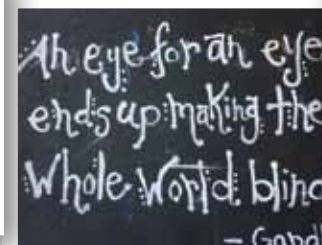 An eye for an eye
ends up making the
whole world blind
- Gandh